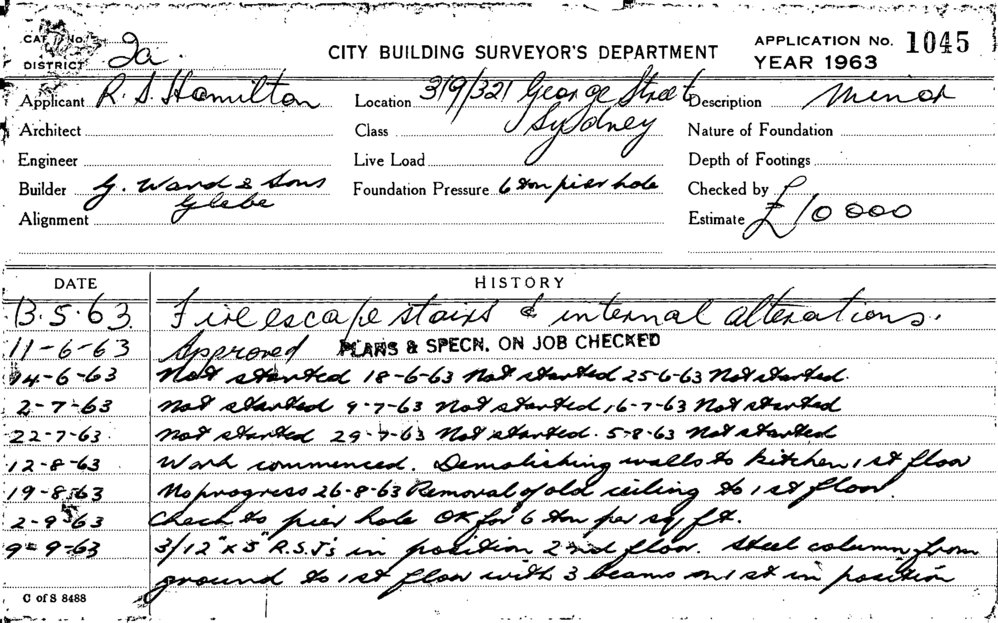 CAT. No.
DISTRICT 2a.
CITY BUILDING SURVEYOR'S DEPARTMENT
APPLICATION No. 1045
YEAR 1963
Applicant R. S. Hamilton Location 319/321 George Street Description Minor
Architect Class Sydney Nature of Foundation
Engineer Live Load Depth of Footings
Builder G. Ward & Sons Foundation Pressure 6 ton pier hole Checked by
Glebe
Alignment Estimate £10 000
DATE HISTORY
13.5.63. Fire escape stairs & internal alterations.
11-6-63 Approved PLANS & SPECN. ON JOB CHECKED
14-6-63 Not started 18-6-63 Not started 25-6-63 Not started.
2-7-63 Not started 9-7-63 Not started, 16-7-63 Not started
22-7-63 Not started 29-7-63 Not started. 5-8-63 Not started
12-8-63 Work commenced. Demolishing walls to kitchen 1st floor
19-8-63 No progress 26-8-63 Removal of old ceiling to 1st floor.
2-9-63 Check to pier hole OK for 6 ton per sq ft.
9-9-63 3/12" x 5" R.S.J's in position 2nd floor. Steel column from
ground to 1st floor with 3 beams on 1st in position
C of S 8488